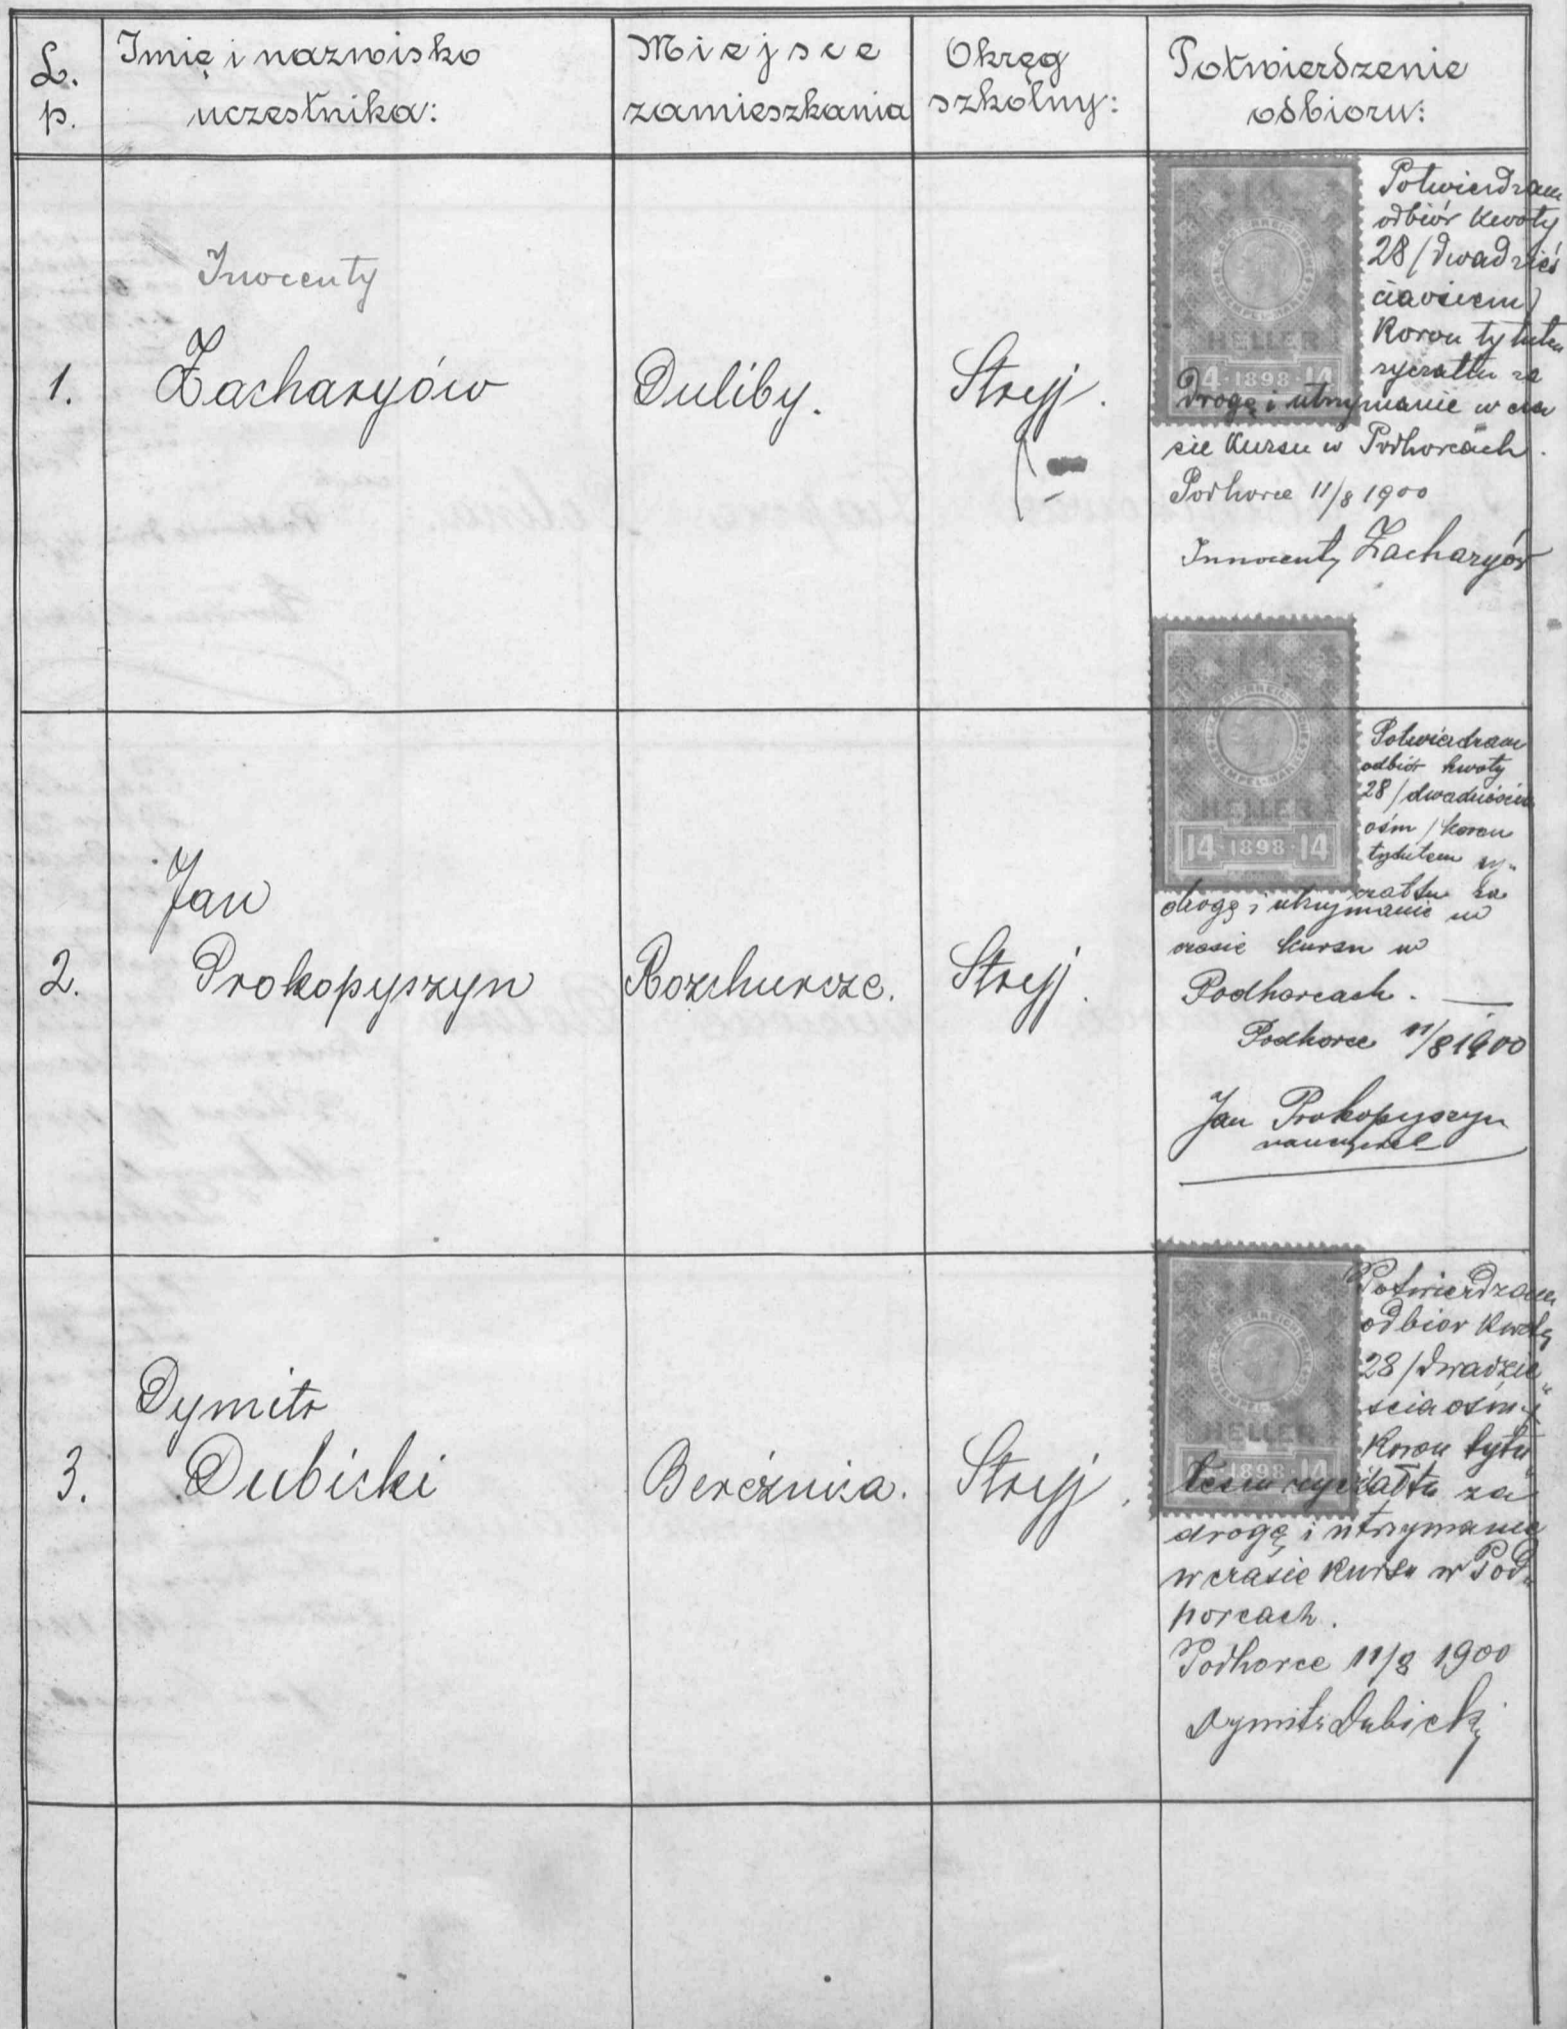 L. p.
Imię i nazwisko
uczestnika:
Miejsce
zamieszkania
Okręg
szkolny:
Potwierdzenie
odbioru:
1.
Inocenty
Zacharyów
Duliby.
Stryj.
Potwierdzam
odbiór kwoty
28 /dwadzieś
ciaośiem/
Koron tytułem
ryczałtu za
HELLER
14 · 1898 · 14
drogę i utrzymanie w cza
sie kursu w Podhorcach.
Podhorce 11/8 1900
Innocenty Zacharyów
2.
Jan
Prokopyszyn
Rozchurcze.
Stryj.
Potwierdzam
odbiór kwoty
28 /dwadzieścia
ośm / koron
tytułem ry„
czałtu za
HELLER
14 · 1898 · 14
drogę i utrzymanie w
czasie kursu w
Podhorcach. —
Podhorce 11/8 1900
Jan Prokopyszyn
nauczyciel
3.
Dymitr
Dubicki
Bereźnica.
Stryj.
Potwierdzam
odbior kwoty
28 /dwadzie„
scia ośm/
Koron tytu„
HELLER
1898 14
łem ryczałtu za
drogę i utrzymanie
w czasie kursu w Pod„
horcach.
Podhorce 11/8 1900
Dymitr Dubicki